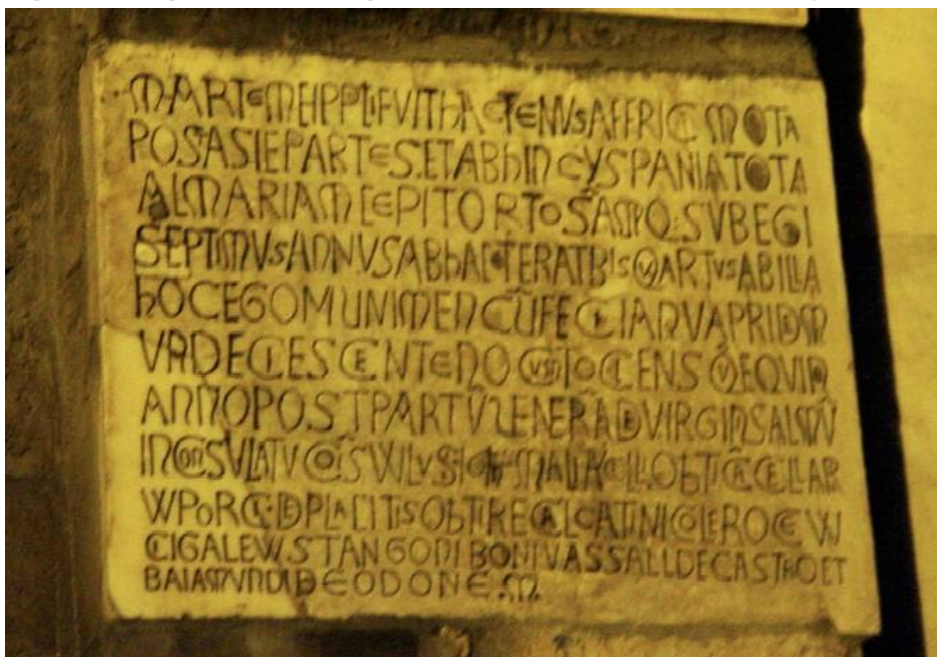 MARTE MEI PPLI FUIT hACTENUS AFFRICA MOTA
POS ASIE PARTES ET AB hINC YSPANIA TOTA
ALMARIAM CEPI TORTOSAMQ SUBEGI
SEPTIMUS ANNUS AB hAC ET ERAT BIS QARTUS AB ILLA
hOC EGO MUNIMEN CU FECI IANUA PRIDEM
UNDECIES CENTENO CU TOCIENS Q EQUINO
ANNO POST PARTU VENERADE VIRGINIS ALMU
IN CONSULATU COIS
W PORC DE PLACITIS OBTI RE CALCATI NICOLE ROCE W
CIGALE W STANGONI BONIVASSALL DE CASTRO ET
BAIAMUNDI DE ODONE M